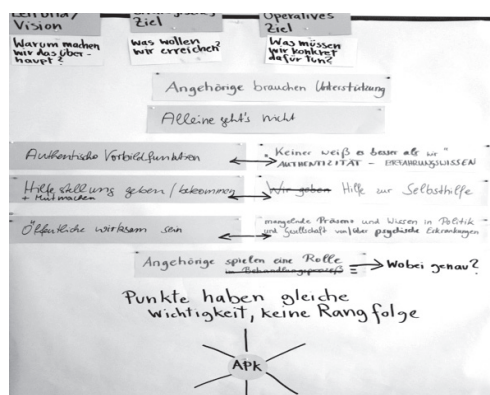 Vision
Warum machen
wir das über-
haupt?
Ziel
Was wollen
wir erreichen?
Operatives
Ziel
Was müssen
wir konkret
dafür tun?
Angehörige brauchen Unterstützung
Alleine geht's nicht
Authentische Vorbildfunktion
"Keiner weiß es besser als wir"
AUTHENTIZITÄT - ERFAHRUNGSWISSEN
Hilfestellung geben / bekommen
+ Mut machen
Wir geben Hilfe zur Selbsthilfe
Öffentliche wirksam sein
mangelnde Präsenz und Wissen in Politik
und Gesellschaft von/über psychische Erkrankungen
Angehörige spielen eine Rolle
im Behandlungsprozeß
Wobei genau?
Punkte haben gleiche
Wichtigkeit, keine Rangfolge
APK